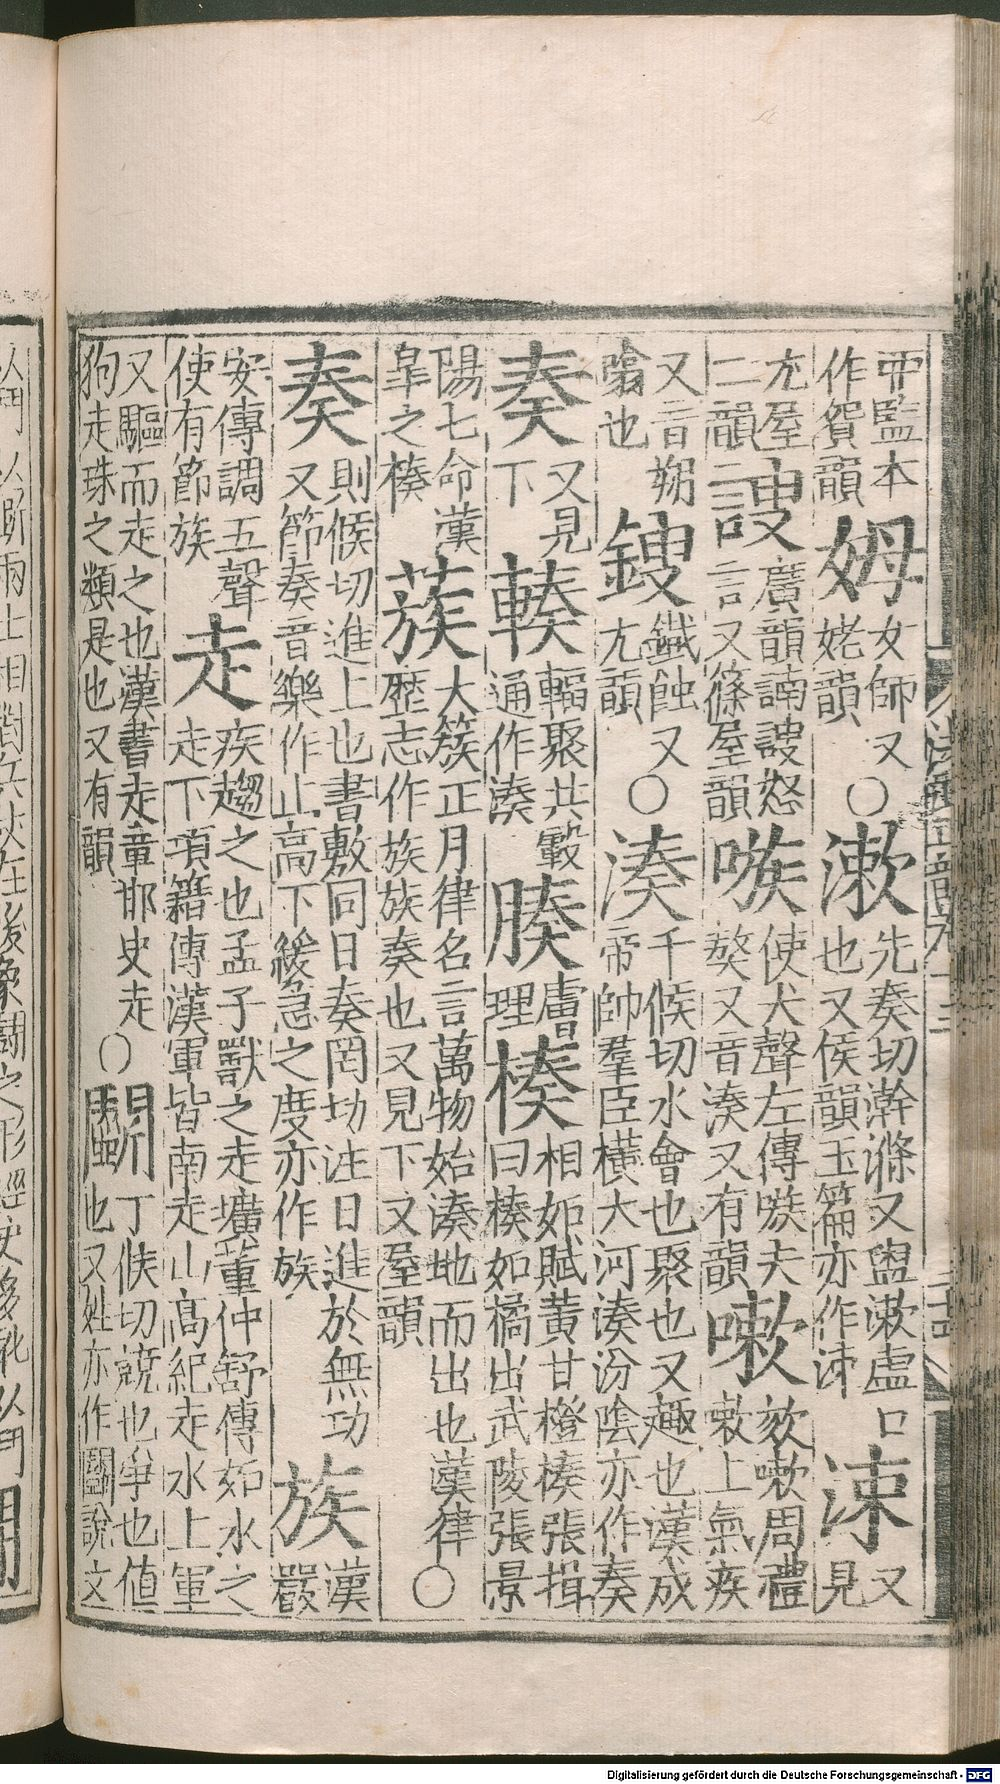 覀監本
作貿韻
姆
女師又
姥韻
○
漱
先奏切澣滌又盥漱盧口
也又侯韻玉篇亦作涑
涑
又
見
尤屋
二韻
謏
廣韻誦謏怒
言又篠屋韻
嗾
使犬聲左傳嗾夫
獒又音湊又有韻
嗽
欬嗽周禮
嗽上氣疾
又音
隃也
鎪
鐵蝕又
尤韻
○
湊
千候切水會也聚也又趣也漢成
帝帥羣臣橫大河湊汾陰亦作奏
奏
又見
下
輳
輻聚共轂
通作湊
腠
膚
理
楱
相如賦黃甘橙楱張揖
曰楱如橘出武陵張景
陽七命漢
皐之楱
蔟
大簇正月律名言萬物始湊地而出也漢律
歷志作族族奏也又見下又屋韻
○
奏
則候切進上也書敷同日奏罔功注日進於無功
又節奏音樂作止高下緩急之度亦作族
族
漢
嚴
安傳調五聲
使有節族
走
疾趨之也孟子獸之走壙董仲舒傳如水之
走下項籍傳漢軍皆南走山高紀走水上軍
又驅而走之也漢書走章邯史走
狗走珠之類是也又有韻
○
鬭
丁候切競也爭也値
也又姓亦作鬪說文
Digitalisierung gefördert durch die Deutsche Forschungsgemeinschaft - DFG